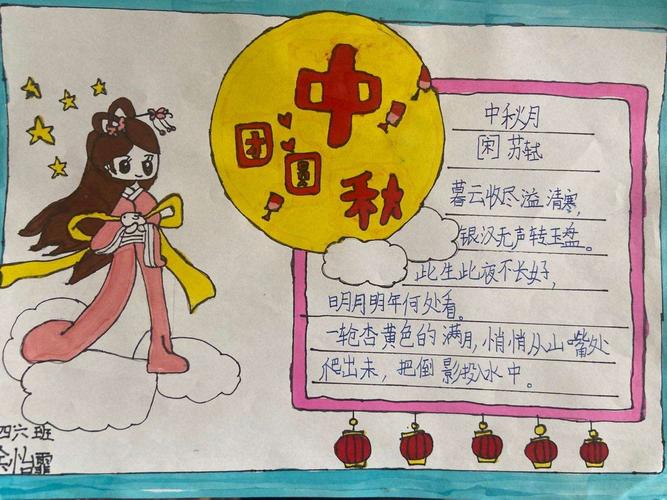 中秋
团圆
中秋月
[宋] 苏轼
暮云收尽溢清寒,
银汉无声转玉盘。
此生此夜不长好,
明月明年何处看。
一轮杏黄色的满月,悄悄从山嘴处
爬出来,把倒影投入水中。
四六班
怡霏